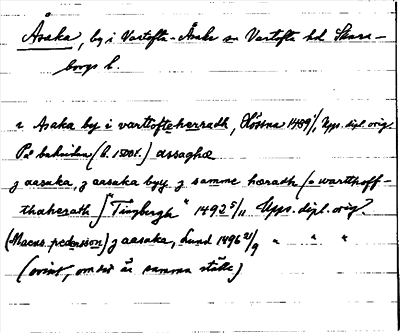 Åsaka, by i Vartofta-Åsaka sn Vartofta hd Skara-
borgs l.
i Asaka by i varttofteherradh, Slössna 1489 1/1 Upps. dipl. orig.
På baksidan (b. 1500t.) assaghæ
j aasaka, j aasaka byy j samme hæradh (o: wartthoff-
thaherath) Tingbergh 1492 5/11 Upps. dipl. orig.
(Macus. pedersson) j aasaka, Lund 1496 21/9 " " "
(ovist, om det är samma ställe)